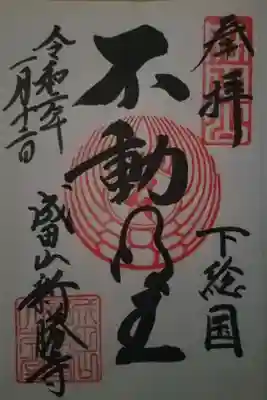 奉拝
下総国
不動明王
令和二年
一月十二日
成田山新勝寺